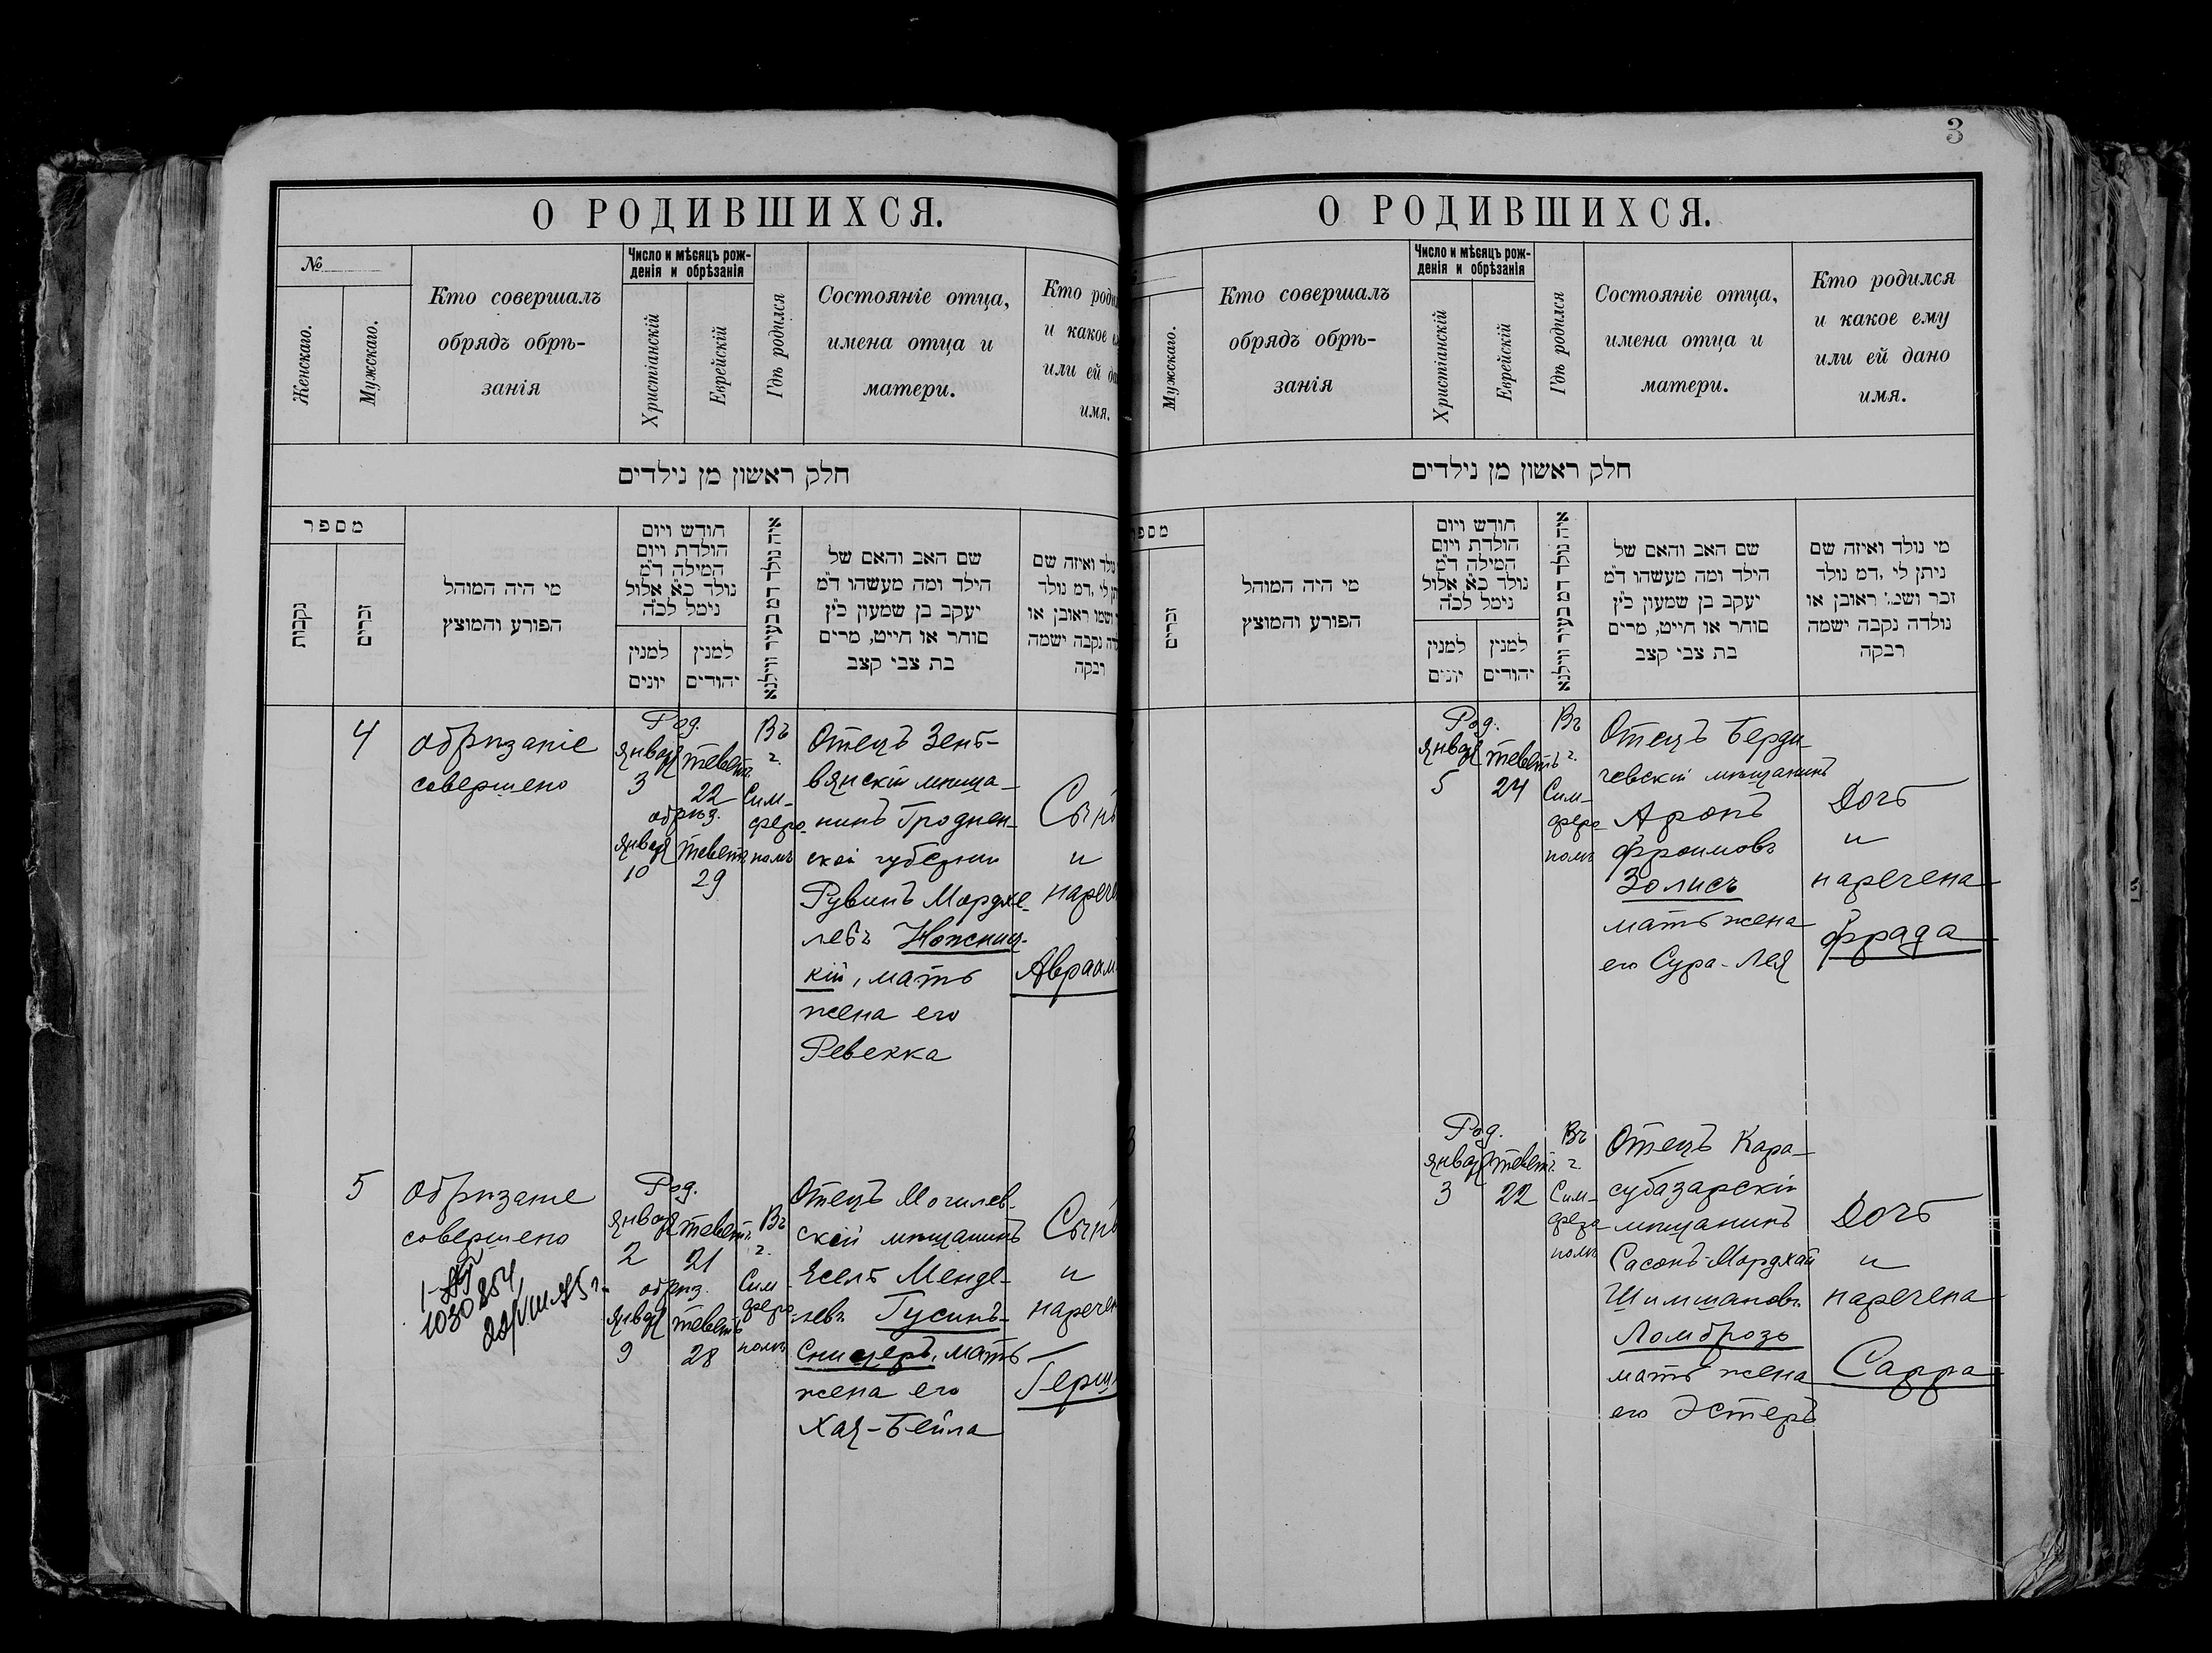 О РОДИВШИХСЯ.
№
Женскаго.
Мужскаго.
Кто совершалъ
обрядъ обрѣ-
занія
Число и мѣсяцъ рож-
денія и обрѣзанія
Христіанскій
Еврейскій
Гдѣ родился
Состояніе отца,
имена отца и
матери.
Кто роди
и какое
или ей да
имя.
חלק ראשון מן נילדים
מספר
נקבות
זכרים
מי היה המוהל
הפורע והמוצץ
חודש ויום
הולדת ויום
המילה ד״מ
נולד כ״א אלול
נימל לכ״ה
למנין
יונים
למנין
יהודים
איה נולד דמ בעיר ווילנא
שם האב והאם של
הילד ומה מעשהו ד״מ
יעקב בן שמעון כ״ץ
סוחר או חייט, מרים
בת צבי קצב
נולד ואיזה שם
תן לי ,דמ נולד
ושמו ראובן או
דה נקבה ישמה
רבקה
4
обрѣзаніе
совершено
Род.
Январ Тевет.
3 22
обрѣз.
Январ Тевет.
10 29
Въ
г.
Сим-
феро-
полѣ
Отецъ Зель-
вянскій мѣща-
нинъ Гроднен-
ской губерніи
Рувинъ Мордхе-
левъ Ножниц-
кій, мать
жена его
Ревекка
Сынъ
и
нарече
Авраам
5
Обрѣзаніе
совершено
Род.
Январ Тевет.
2 21
обрѣз.
Январ Тевет
9 28
Въ
г.
Сим-
феро-
полѣ
Отецъ Могилев-
скій мѣщанинъ
Іосель Менде-
левъ Гусинъ-
Сницеръ, мать
жена его
Хая-Бейла
Сынъ
и
наречен
Герш
3
О РОДИВШИХСЯ.
Мужскаго.
Кто совершалъ
обрядъ обрѣ-
занія
Число и мѣсяцъ рож-
денія и обрѣзанія
Христіанскій
Еврейскій
Гдѣ родился
Состояніе отца,
имена отца и
матери.
Кто родился
и какое ему
или ей дано
имя.
חלק ראשון מן נילדים
מספר
זכרים
מי היה המוהל
הפורע והמוצץ
חודש ויום
הולדת ויום
המילה ד״מ
נולד כ״א אלול
נימל לכ״ה
למנין
יונים
למנין
יהודים
איה נולד דמ בעיר ווילנא
שם האב והאם של
הילד ומה מעשהו ד״מ
יעקב בן שמעון כ״ץ
סוחר או חייט, מרים
בת צבי קצב
מי נולד ואיזה שם
ניתן לי ,דמ נולד
זכר ושמו ראובן או
נולדה נקבה ישמה
רבקה
Род.
Январ Тевет
5 24
Въ
г.
Сим-
феро-
полѣ
Отецъ Берди-
чевскій мѣщанинъ
Аронъ
Фроимовъ
Золисъ
мать жена
его Сура-Лея
Дочь
и
наречена
Фрада
3
Род.
Январ Тевет.
3 22
Въ
г.
Сим-
феро-
полѣ
Отецъ Кара-
субазарскій
мѣщанинъ
Сасонъ-Мордхай
Шимшановъ
Ломброзо
мать жена
его Эстеръ
Дочь
и
наречена
Сарра